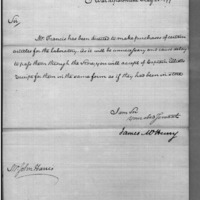 War Department May
Sir,
Mr Francis has been directed to make purchases of certain
articles for the laboratory. As it will be unnecessary and cause delay
to pass them through the Store, you will accept of Captain
receipt for them in the same form as if they had been in Store
I am Sir
your obed Servant
James McHenry
Mr John Harris